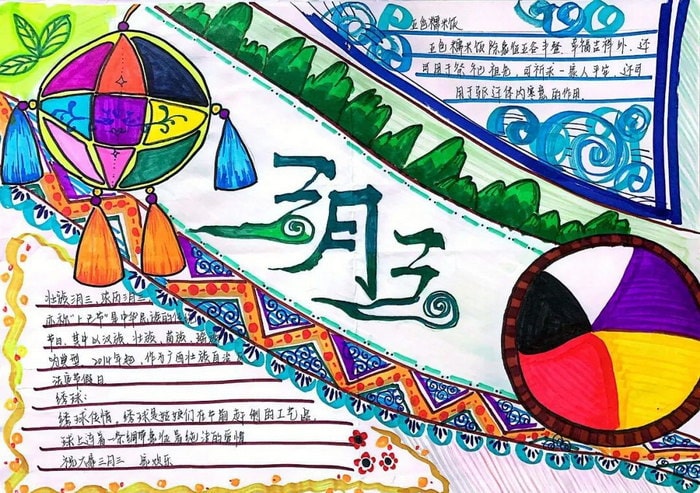 五色糯米饭
五色糯米饭除象征五谷丰登、幸福吉祥外,还
可用于祭祀祖先,可祈求一家人平安,还可
用于驱逐体内寒意的作用.
三月三
壮族三月三,农历三月三
亦称"上巳节"是中华民族的
节日,其中以汉族、壮族、苗族、瑶
为典型 2014年起,作为广西壮族自治
法定节假日
绣球:
绣球传情,绣球是姑娘们在节期 的工艺品
球上连着一条绸带象征着纯洁的爱情
祝大家三月三 快乐